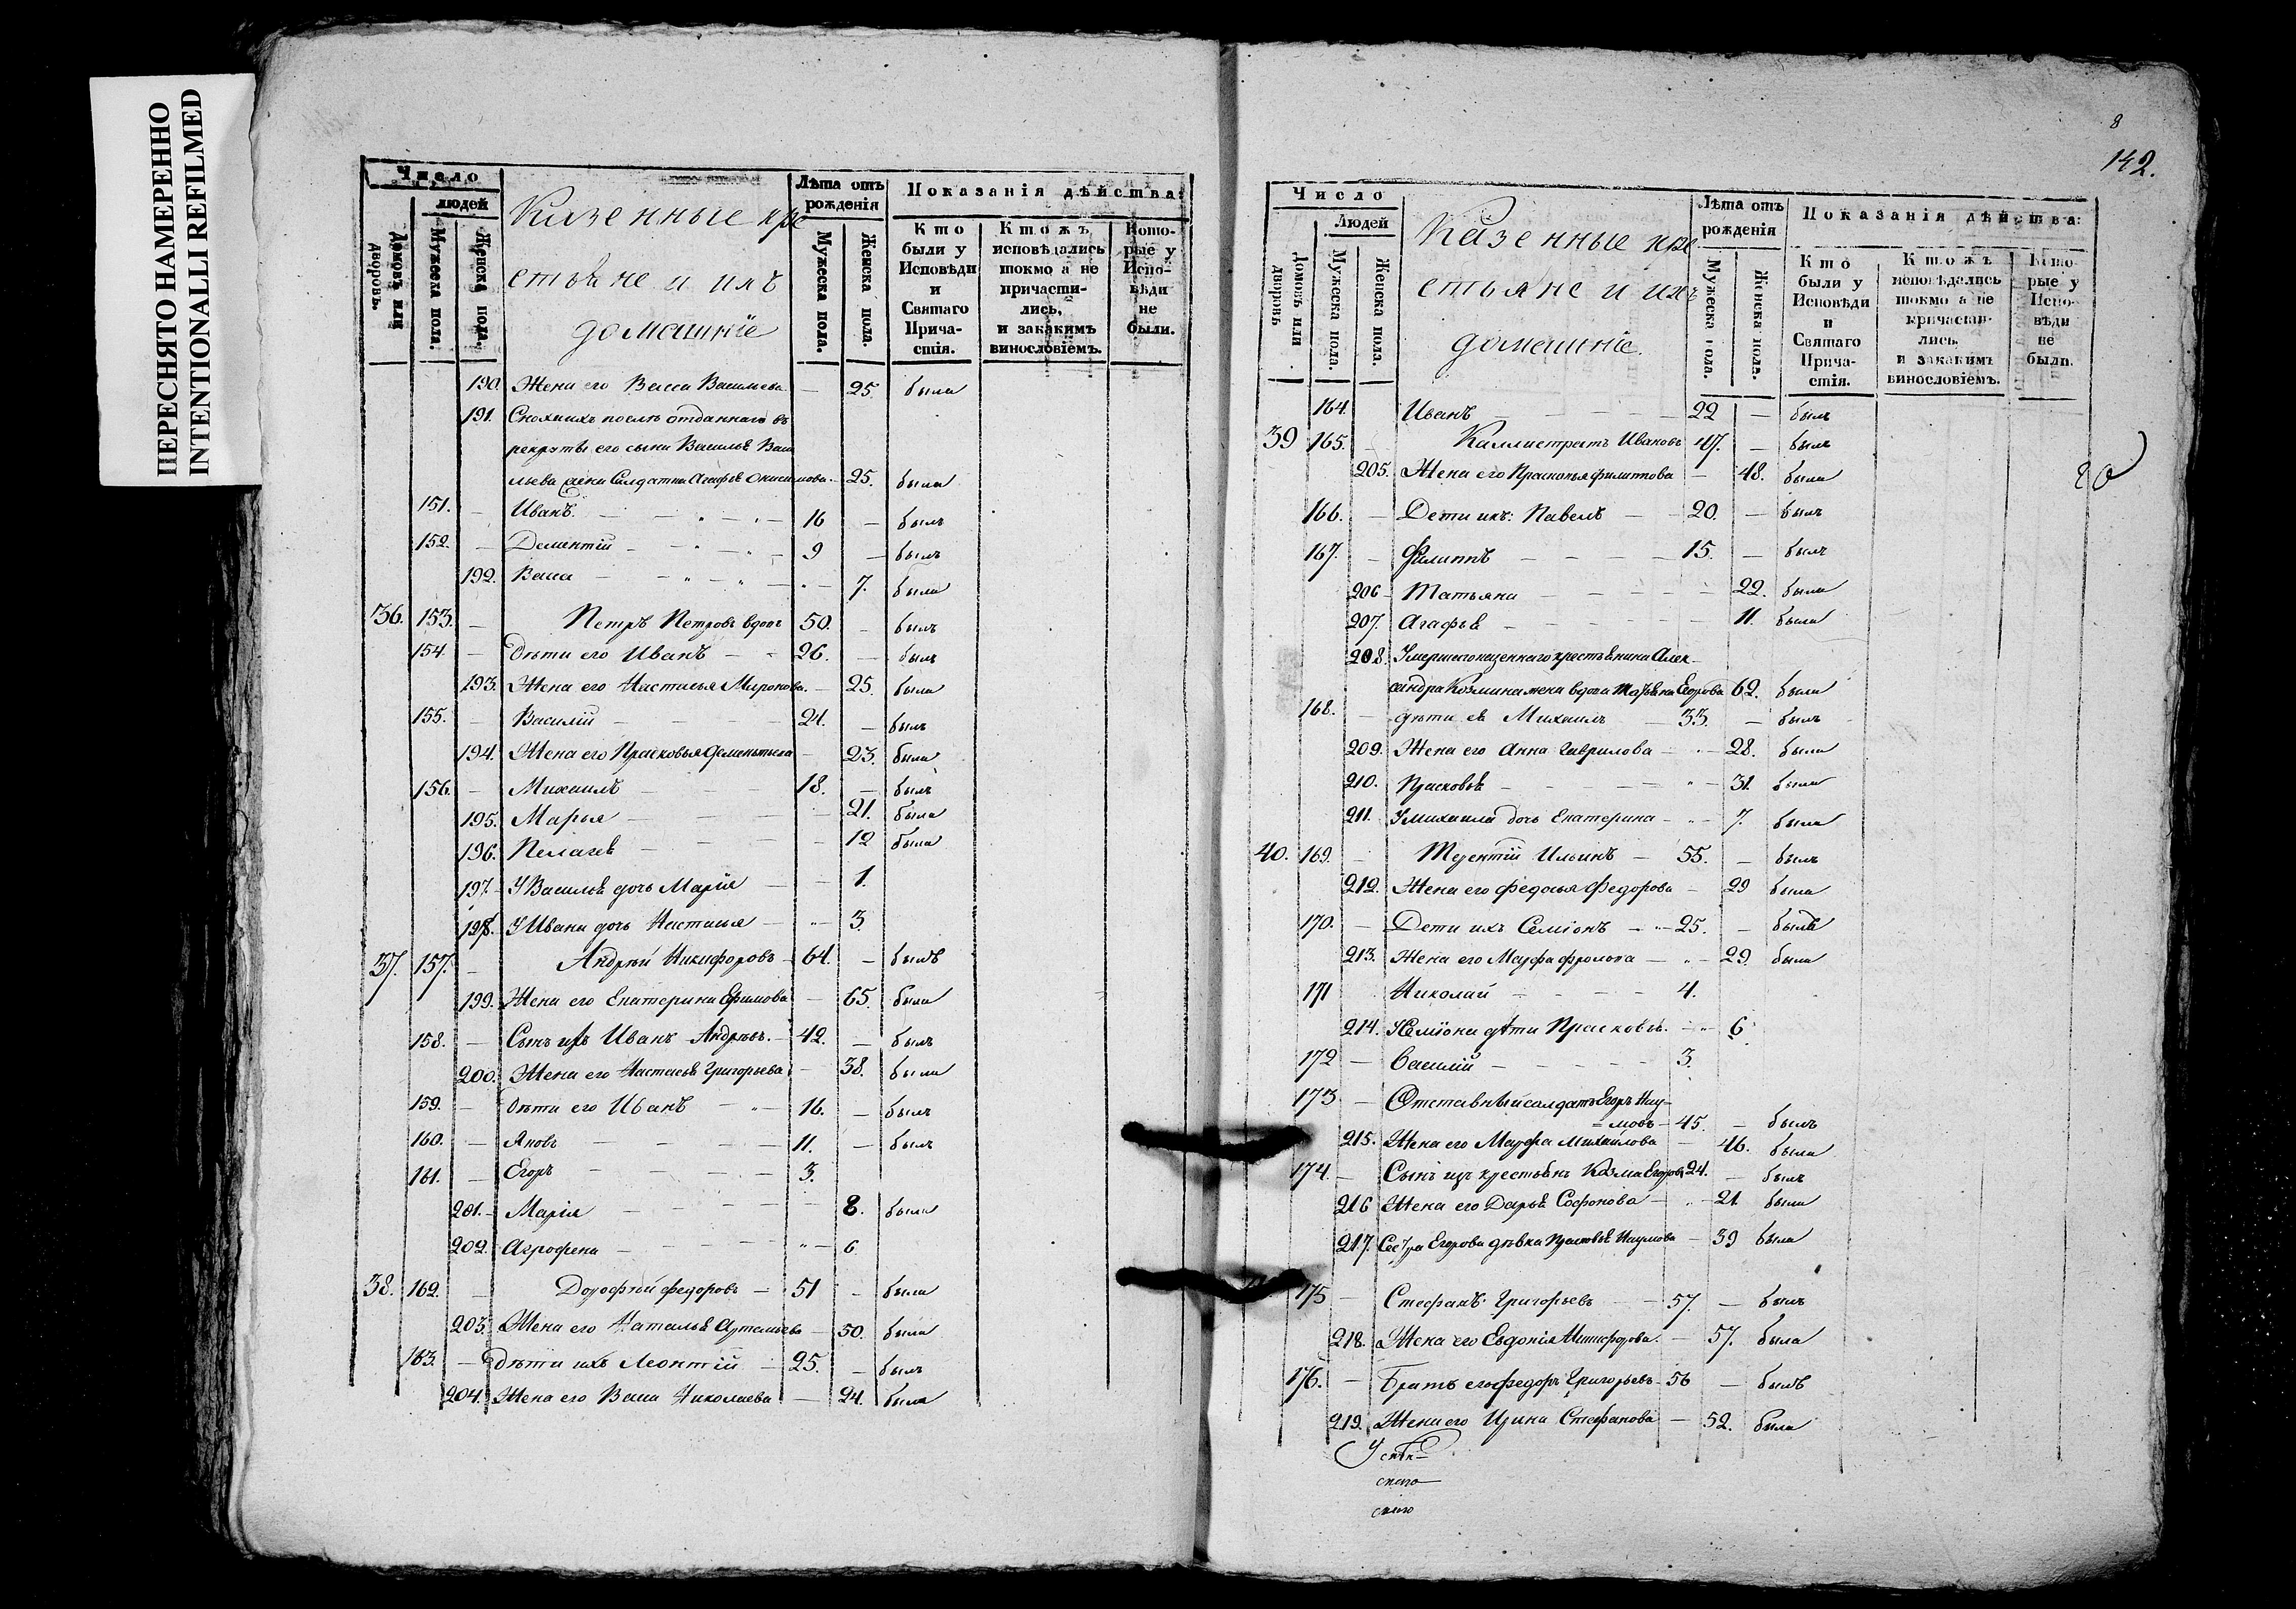 ПЕРЕСНЯТО НАМЕРЕННО
INTENTIONALLI REFILMED
Число
людей
Домовъ или дворовъ.
Мужеска пола.
Женска пола.
Казенные кре
стьяне и ихъ
домашніе
Лѣта отъ рожденія
Мужеска пола.
Женска пола.
Показанія дѣйства:
Кто были у Исповѣди и Святаго Причастія.
Ктожъ исповѣдались токмо а не причастились, и закакимъ винословіемъ.
Которые у Исповѣди не были.
190. Жена его Васса Васильева — 25. была
191. Снохаихъ послѣ отданнаго въ
рекруты его сына Василья Васи
льева жена Салдатка Агафья — 25. была
151. — Иванъ — 16 — былъ
152. — Дементій — 9 — былъ
192. Васса — 7. была
36. 153. — Петръ Петровъ вдовъ 50. — былъ
154. — Дѣти его Иванъ — 26. — былъ
193. Жена его Настасья Миронова. — 25. была
155. — Василій — 21. — былъ
194. Жена его Прасковья Дементьева — 23. была
156. — Михаилъ — 18. — былъ
195. Марья — 21. была
196. Пелагея — 12 была
197. У Василья дочь Марія — 1.
198. У Ивана дочь Настасья — 3.
37. 157. — Андрѣй Никифоровъ — 64. — былъ
199. Жена его Екатерина Ефимова — 65. была
158. — Сынъ ихъ Иванъ Андрѣевъ. — 42. — былъ
200. Жена его Настасья Григорьева — 38. была
159. — Дѣти его Иванъ — 16. — былъ
160. — Яковъ — 11. — былъ
161. — Егоръ — 3.
201. Марія — 8. была
202. Агрофена — 6
38. 162. — Дорофѣй Федоровъ — 51 — была
203. Жена его Наталья Артамьева — 50. была
163. — Дѣти ихъ Леонтій — 25. — былъ
204. Жена его Васса Николаева — 24. была
8
142.
Число
Людей
Домовъ или дворовъ
Мужеска пола.
Женска пола.
Казенные кре
стьяне и ихъ
домашніе.
Лѣта отъ рожденія
Мужеска пола.
Женска пола.
Показанія дѣйства:
Кто были у Исповѣди и Святаго Причастія.
Ктожъ исповѣдались токмо а не причастились, и закакимъ винословіемъ.
Которые у Исповѣди не были.
164 Иванъ — 22 — былъ
39 165. — Каллистратъ Ивановъ 47. — былъ
205. Жена его Прасковья Филиппова — 48. была
166. — Дети ихъ: Павелъ — 20. — былъ
167. — Филиппъ — 15. — былъ
206 Татьяна — 22. была
207. Агафья — 11. была
208. Умершаго казеннаго крестьянина Алек-
сандра Козмина жена вдова Егорова 62. была
168. — дѣти ея Михаилъ — 33. — былъ
209. Жена его Анна Гаврилова — 28. была
210. Прасковья — 31. была
211. У Михаила дочь Екатерина — 7. была
40. 169. — Терентій Ильинъ — 55. — былъ
212. Жена его Федосья Федорова — 29 была
170. — Дети ихъ Семіонъ — 25. — былъ
213. Жена его Марфа Фролова — 29. была
171 Николай — 4.
214. У Семіона дѣти Прасковья. — 6
172 — Василій — 3.
173 — Отставный салдатъ Егоръ Нау-
= мовъ — 45. — былъ
215. Жена его Марфа Михайлова — 46. была
174. — Сынъ изъ крестьянъ Козма Егоровъ 24. — былъ
216 Жена его Дарья Софонова — 21 была
217. Сестра Егорова дѣвка Прасковья Наумова — 39 была
175 — Стефанъ Григорьевъ — 57. — былъ
218. Жена его Евдокія — 57. была
176. — Братъ его Федоръ Григорьевъ — 56 — былъ
219. Жена его Ирина Стефанова — 52. была